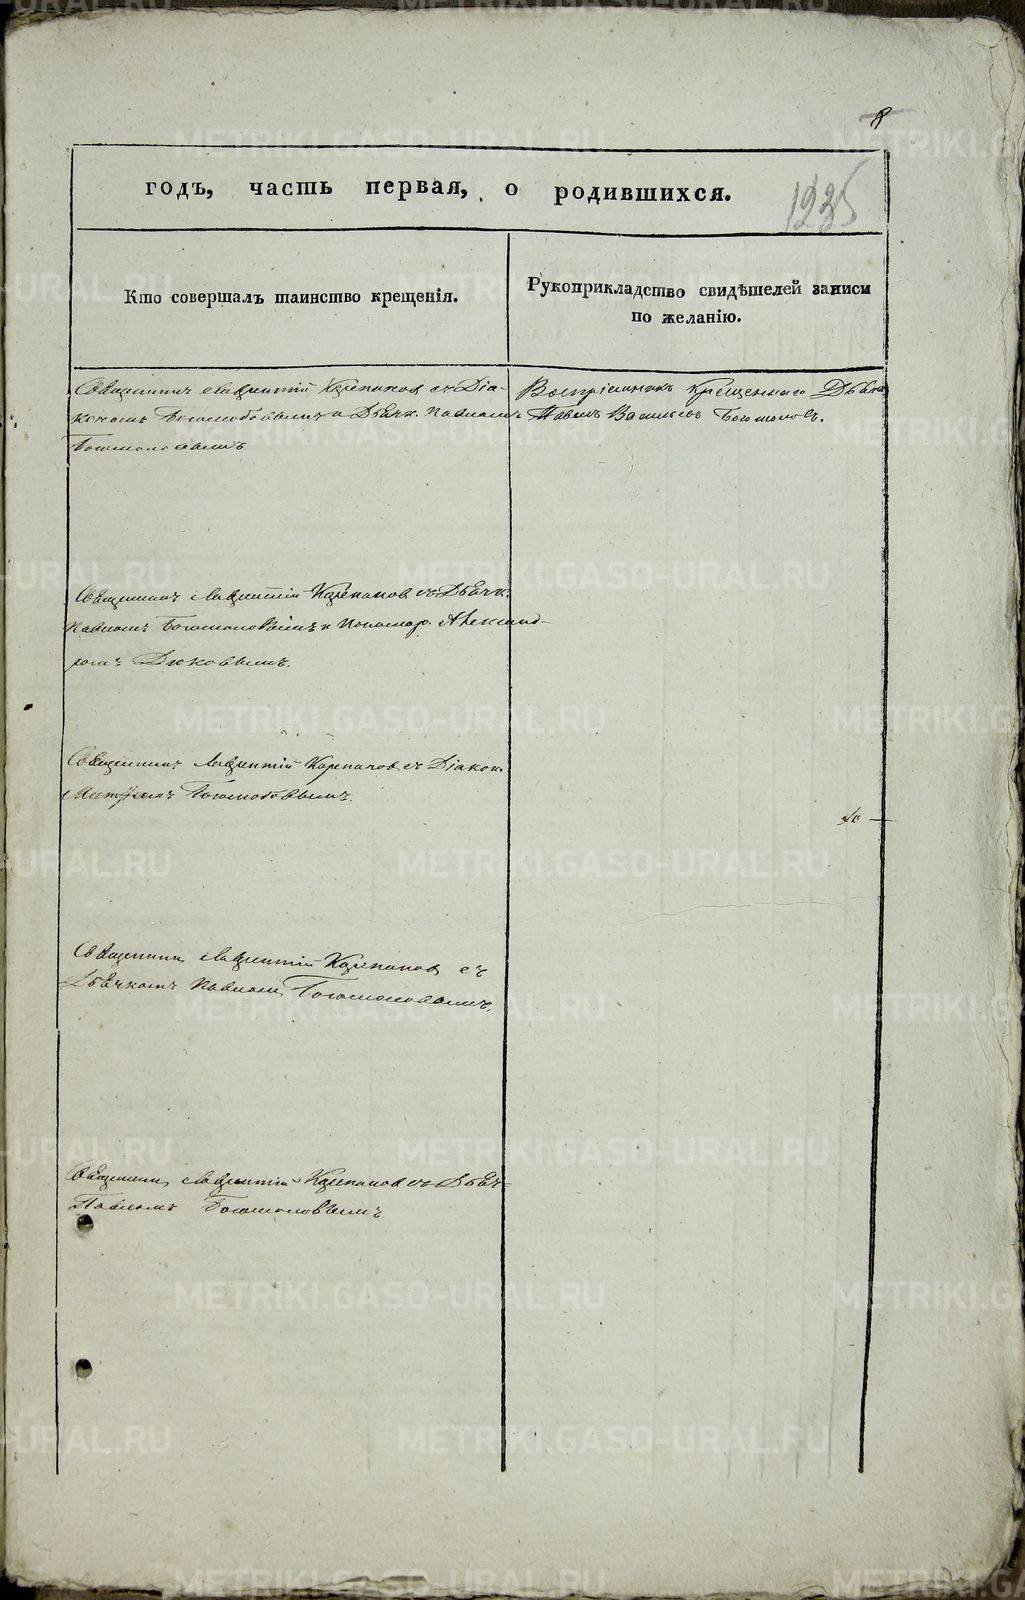 8
годъ, часть первая, о родившихся.
1235
Кто совершалъ таинство крещенія.
Рукоприкладство свидѣтелей записи
по желанію.
Священникъ Лаврентій Карпиновъ съ Діа-
кономъ Богомоловымъ и Дьячк. Павломъ
Богомоловымъ
Воспріемникъ Крещеннаго Дьячк
Павелъ Васильевъ Богомоловъ.
Священникъ Лаврентій съ Дьячк.
Павломъ Богомоловымъ и Пономар. Александ-
ромъ Дюковымъ.
Священникъ Лаврентій съ Діакон.
Богомоловымъ.
Священникъ Лаврентій съ
Дьячкомъ Павломъ Богомоловымъ.
Священникъ Лаврентій съ Дьяч-
Павломъ Богомоловымъ
METRIKI.GASO-URAL.RU